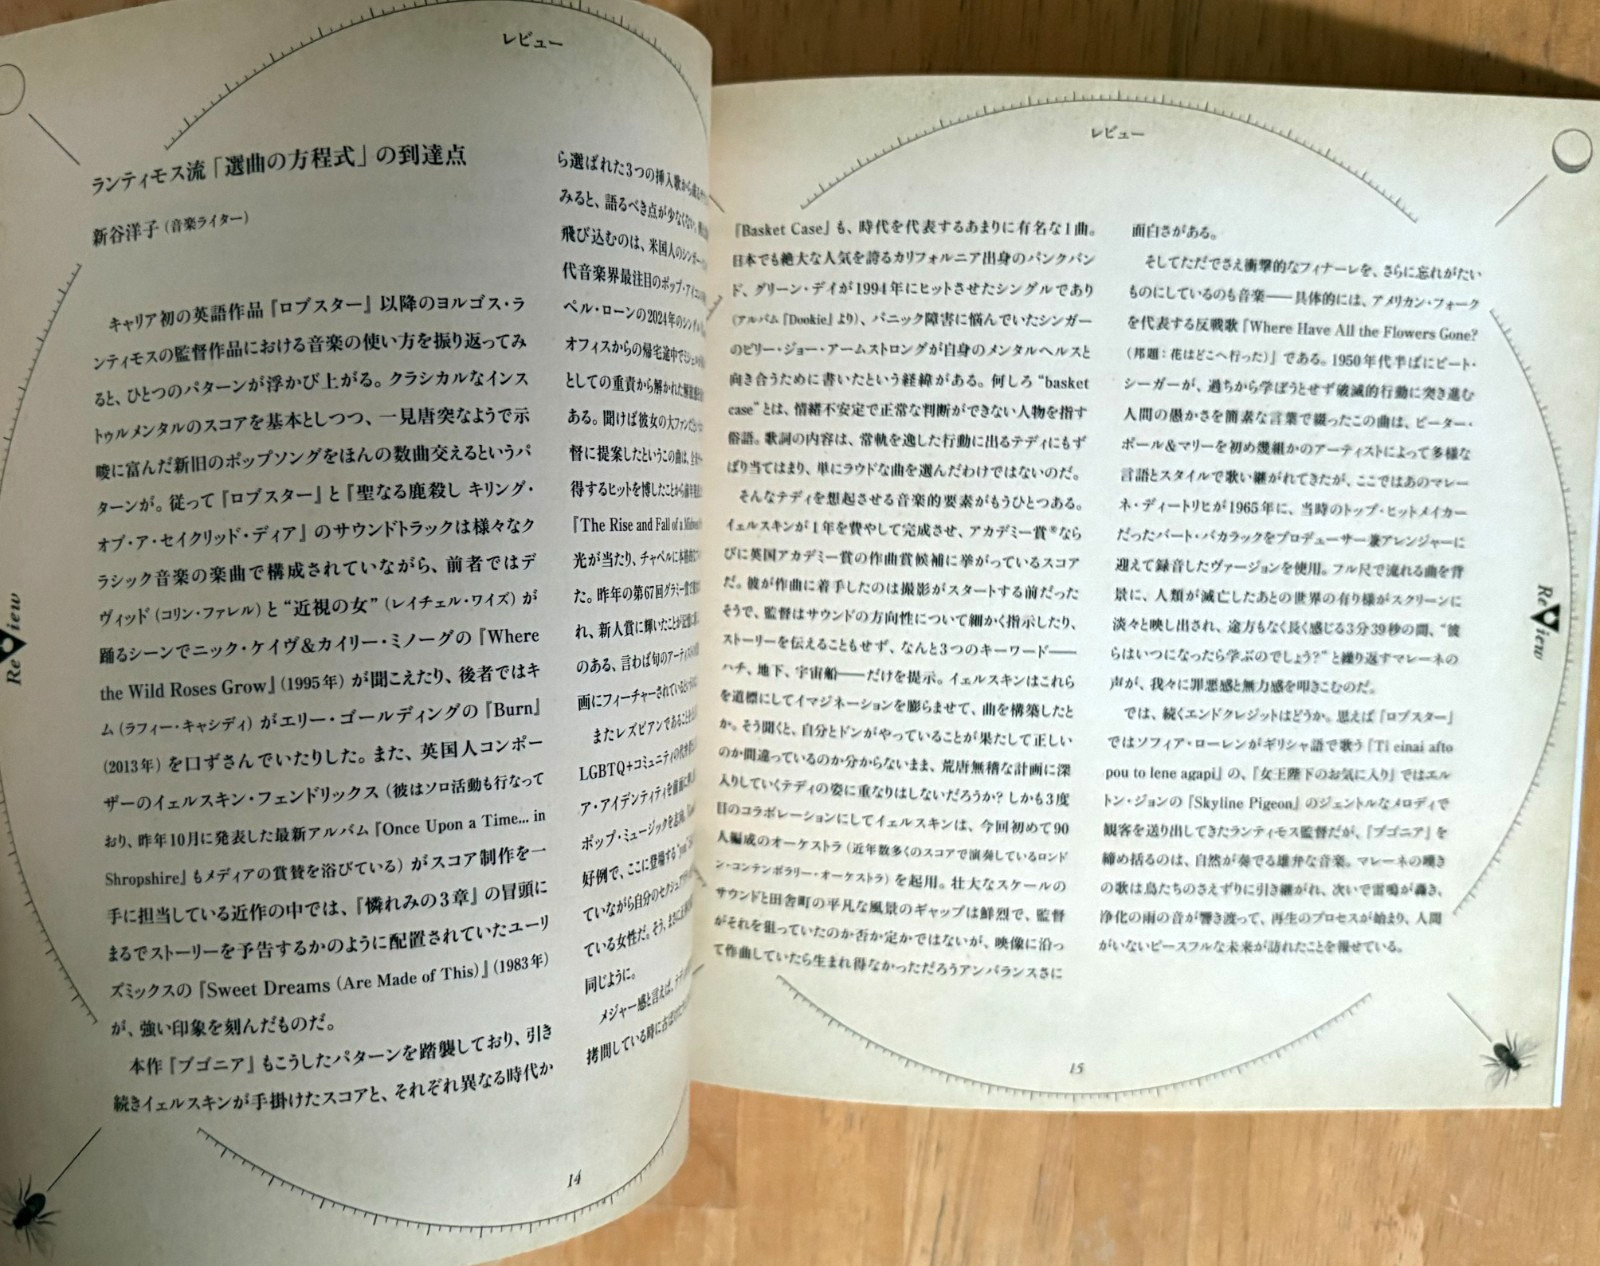 レビュー
ランティモス流「選曲の方程式」の到達点
新谷洋子(音楽ライター)
キャリア初の英語作品『ロブスター』以降のヨルゴス・ラ
ンティモスの監督作品における音楽の使い方を振り返ってみ
ると、ひとつのパターンが浮かび上がる。クラシカルなインス
トゥルメンタルのスコアを基本としつつ、一見唐突なようで示
唆に富んだ新旧のポップソングをほんの数曲交えるというパ
ターンが。従って『ロブスター』と『聖なる鹿殺し キリング・
オブ・ア・セイクリッド・ディア』のサウンドトラックは様々なク
ラシック音楽の楽曲で構成されていながら、前者ではデ
ヴィッド(コリン・ファレル)と“近視の女”(レイチェル・ワイズ)が
踊るシーンでニック・ケイヴ&カイリー・ミノーグの『Where
the Wild Roses Grow』(1995年)が聞こえたり、後者ではキ
ム(ラフィー・キャシディ)がエリー・ゴールディングの『Burn』
(2013年)を口ずさんでいたりした。また、英国人コンポー
ザーのイェルスキン・フェンドリックス(彼はソロ活動も行なって
おり、昨年10月に発表した最新アルバム『Once Upon a Time... in
Shropshire』もメディアの賞賛を浴びている)がスコア制作を一
手に担当している近作の中では、『憐れみの3章』の冒頭に
まるでストーリーを予告するかのように配置されていたユーリ
ズミックスの『Sweet Dreams (Are Made of This)』(1983年)
が、強い印象を刻んだものだ。
本作『ブゴニア』もこうしたパターンを踏襲しており、引き
続きイェルスキンが手掛けたスコアと、それぞれ異なる時代か
ら選ばれた3つの挿入歌から
みると、語るべき点が少なくない。
飛び込むのは、米国人のシンガー
代音楽界最注目のポップ・アイコン
ペル・ローンの2024年のシングル
オフィスからの帰宅途中で
としての重責から解かれた
ある。聞けば彼女の大ファン
督に提案したというこの曲は、
得するヒットを博したことから
『The Rise and Fall of a Midwest
光が当たり、チャペルに
た。昨年の第67回グラミー賞で
れ、新人賞に輝いたことが記憶に
のある、言わば旬のアーティスト
画にフィーチャーされている
またレズビアンであることを
LGBTQ+コミュニティの代弁者
ア・アイデンティティを前面に
ポップ・ミュージックを
好例で、ここに登場する
ていながら自分のセクシュアリティ
ている女性だ。そう、まさに
同じように。
メジャー感と言えば、テディ
拷問している時に
14
Review
レビュー
『Basket Case』も、時代を代表するあまりに有名な1曲。
日本でも絶大な人気を誇るカリフォルニア出身のパンクバン
ド、グリーン・デイが1994年にヒットさせたシングルであり
(アルバム『Dookie』より)、パニック障害に悩んでいたシンガー
のビリー・ジョー・アームストロングが自身のメンタルヘルスと
向き合うために書いたという経緯がある。何しろ“basket
case”とは、情緒不安定で正常な判断ができない人物を指す
俗語。歌詞の内容は、常軌を逸した行動に出るテディにもず
ばり当てはまり、単にラウドな曲を選んだわけではないのだ。
そんなテディを想起させる音楽的要素がもうひとつある。
イェルスキンが1年を費やして完成させ、アカデミー賞®なら
びに英国アカデミー賞の作曲賞候補に挙がっているスコア
だ。彼が作曲に着手したのは撮影がスタートする前だった
そうで、監督はサウンドの方向性について細かく指示したり、
ストーリーを伝えることもせず、なんと3つのキーワード──
ハチ、地下、宇宙船──だけを提示。イェルスキンはこれら
を道標にしてイマジネーションを膨らませて、曲を構築したと
か。そう聞くと、自分とドンがやっていることが果たして正しい
のか間違っているのか分からないまま、荒唐無稽な計画に深
入りしていくテディの姿に重なりはしないだろうか? しかも3度
目のコラボレーションにしてイェルスキンは、今回初めて90
人編成のオーケストラ(近年数多くのスコアで演奏しているロンド
ン・コンテンポラリー・オーケストラ)を起用。壮大なスケールの
サウンドと田舎町の平凡な風景のギャップは鮮烈で、監督
がそれを狙っていたのか否か定かではないが、映像に沿っ
て作曲していたら生まれ得なかっただろうアンバランスさに
面白さがある。
そしてただでさえ衝撃的なフィナーレを、さらに忘れがたい
ものにしているのも音楽──具体的には、アメリカン・フォーク
を代表する反戦歌『Where Have All the Flowers Gone?
(邦題:花はどこへ行った)』である。1950年代半ばにピート・
シーガーが、過ちから学ぼうとせず破滅的行動に突き進む
人間の愚かさを簡素な言葉で綴ったこの曲は、ピーター・
ポール&マリーを初め幾組かのアーティストによって多様な
言語とスタイルで歌い継がれてきたが、ここではあのマレー
ネ・ディートリヒが1965年に、当時のトップ・ヒットメイカー
だったバート・バカラックをプロデューサー兼アレンジャーに
迎えて録音したヴァージョンを使用。フル尺で流れる曲を背
景に、人類が滅亡したあとの世界の有り様がスクリーンに
淡々と映し出され、途方もなく長く感じる3分39秒の間、“彼
らはいつになったら学ぶのでしょう?”と繰り返すマレーネの
声が、我々に罪悪感と無力感を叩きこむのだ。
では、続くエンドクレジットはどうか。思えば『ロブスター』
ではソフィア・ローレンがギリシャ語で歌う『Ti einai afto
pou to lene agapi』の、『女王陛下のお気に入り』ではエル
トン・ジョンの『Skyline Pigeon』のジェントルなメロディで
観客を送り出してきたランティモス監督だが、『ブゴニア』を
締め括るのは、自然が奏でる雄弁な音楽。マレーネの嘆き
の歌は鳥たちのさえずりに引き継がれ、次いで雷鳴が轟き、
浄化の雨の音が響き渡って、再生のプロセスが始まり、人間
がいないピースフルな未来が訪れたことを報せている。
15
Review